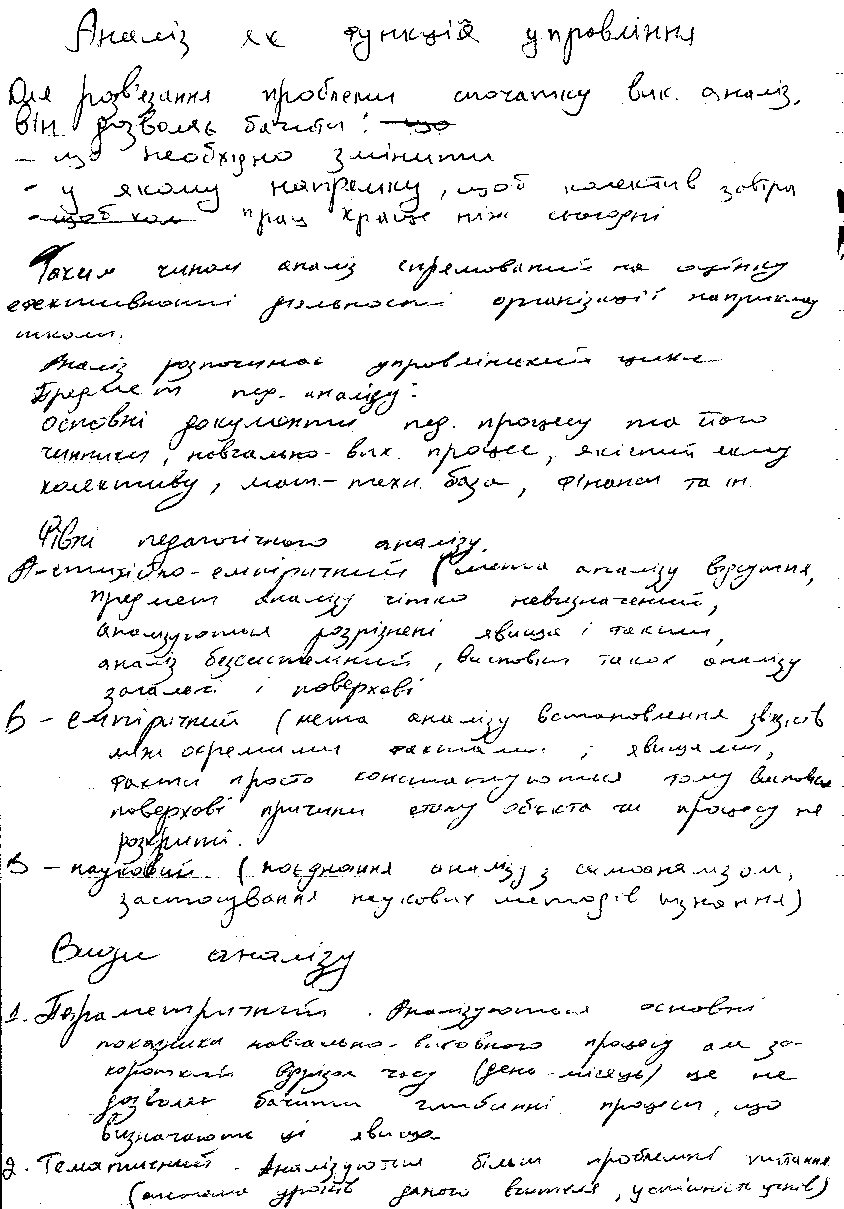 Аналіз як функція управління
Для розв'язання проблеми спочатку вик. аналіз,
він дозволяє бачити: що
- що необхідно змінити
- у якому напрямку, щоб колектив завтра
- щоб кол прац краще ніж сьогодні
Таким чином аналіз спрямований на оцінку
ефективності діяльності організації наприклад
школи.
Аналіз розпочинає управлінський цикл
Предмет пед. аналізу:
основні документи пед. процесу та його
чинники, навчально-вих. процес, якісний склад
колективу, мат-техн. база, фінанси та ін
Рівні педагогічного аналізу.
А-стихійно-емпіричний (мета аналізу відсутня,
предмет аналізу чітко невизначений,
аналізуються розрізнені явища і факти,
аналіз безсистемний, висновки такого аналізу
загальні і поверхові
Б - емпіричний (мета аналізу встановлення звязків
між окремими фактами і явищами,
факти просто констатуються тому висновки
поверхові причини стану обєкта чи процесу не
розкриті.
В - науковий. (поєднання аналізу з самоаналізом,
застосування наукових методів пізнання)
Види аналізу
1. Параметричний. Аналізуються основні
показники навчально-виховного процесу але за
короткий відрізок часу (день-місяць) це не
дозволяє бачити глибинні процеси, що
визначають ці явища
2. Тематичний. Аналізуються більш проблемні питання
(система уроків даного вчителя, успішність учнів)